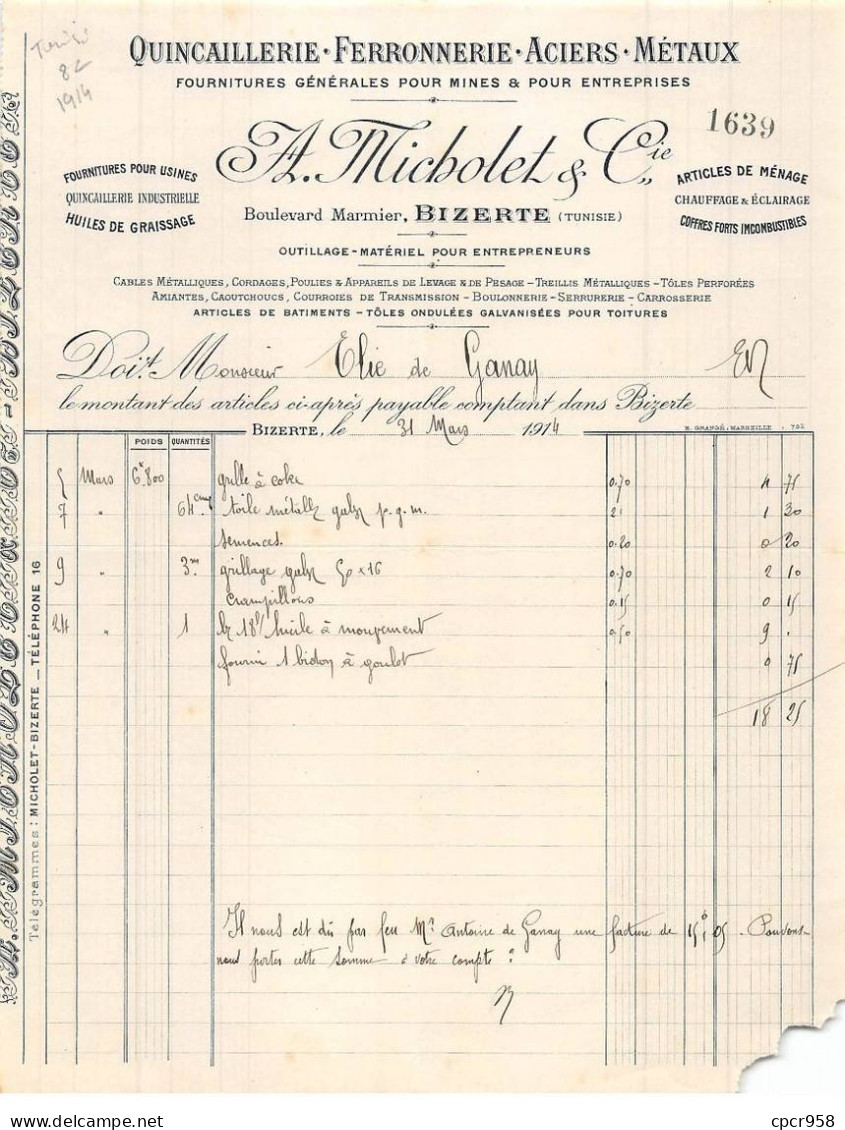 Tunisie
82
1914
QUINCAILLERIE·FERRONNERIE·ACIERS·MÉTAUX
FOURNITURES GÉNÉRALES POUR MINES & POUR ENTREPRISES
1639
A. Micholet & Cie
FOURNITURES POUR USINES
QUINCAILLERIE INDUSTRIELLE
HUILES DE GRAISSAGE
ARTICLES DE MÉNAGE
CHAUFFAGE & ÉCLAIRAGE
COFFRES FORTS IMCOMBUSTIBLES
Boulevard Marmier, BIZERTE (TUNISIE)
OUTILLAGE-MATÉRIEL POUR ENTREPRENEURS
CABLES MÉTALLIQUES, CORDAGES, POULIES & APPAREILS DE LEVAGE & DE PESAGE - TREILLIS MÉTALLIQUES - TÔLES PERFORÉES
AMIANTES, CAOUTCHOUCS, COURROIES DE TRANSMISSION - BOULONNERIE - SERRURERIE - CARROSSERIE
ARTICLES DE BATIMENTS - TÔLES ONDULÉES GALVANISÉES POUR TOITURES
Doit Monsieur Elie de Ganay EV
le montant des articles ci-après payable comptant dans Bizerte
BIZERTE, le 31 Mars 1914
E. GRANGÉ, MARSEILLE
POIDS QUANTITÉS
5 Mars 6k800 grille à coke 0.70 4 75
7 " 64cm toile métall galv p.g.m. 2 1 30
semences 0.20 0 20
9 " 3m grillage galv 50 x 16 0.70 2 10
crampillons 0.15 0 15
24 " 1 18 huile à mouvement 0.50 9 .
fourni 1 bidon à goulot 0 75
18 25
Il nous est dû par feu Mr Antoine de Ganay une facture de 15f05. Pouvons-
nous porter cette somme à votre compte ?
A. MICHOLET & Cie - BIZERTE
Télégrammes: MICHOLET-BIZERTE _ TÉLÉPHONE 16
delcampe.net
cpcr958